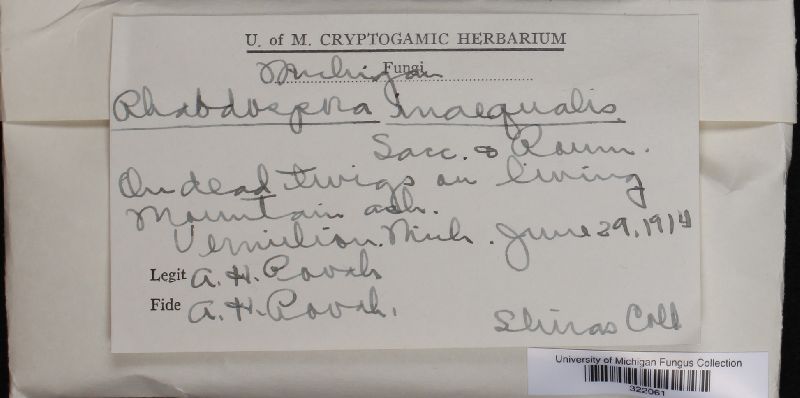 U. of M. CRYPTOGAMIC HERBARIUM
Fungi
Michigan
Rhabdospora inaequalis
Sacc. & Roum.
On dead twigs on living
Mountain ash.
Vermilion. Mich. June 29, 1914
Legit A. H. Povah
Fide A. H. Povah.
Shiras Coll
University of Michigan Fungus Collection
322061